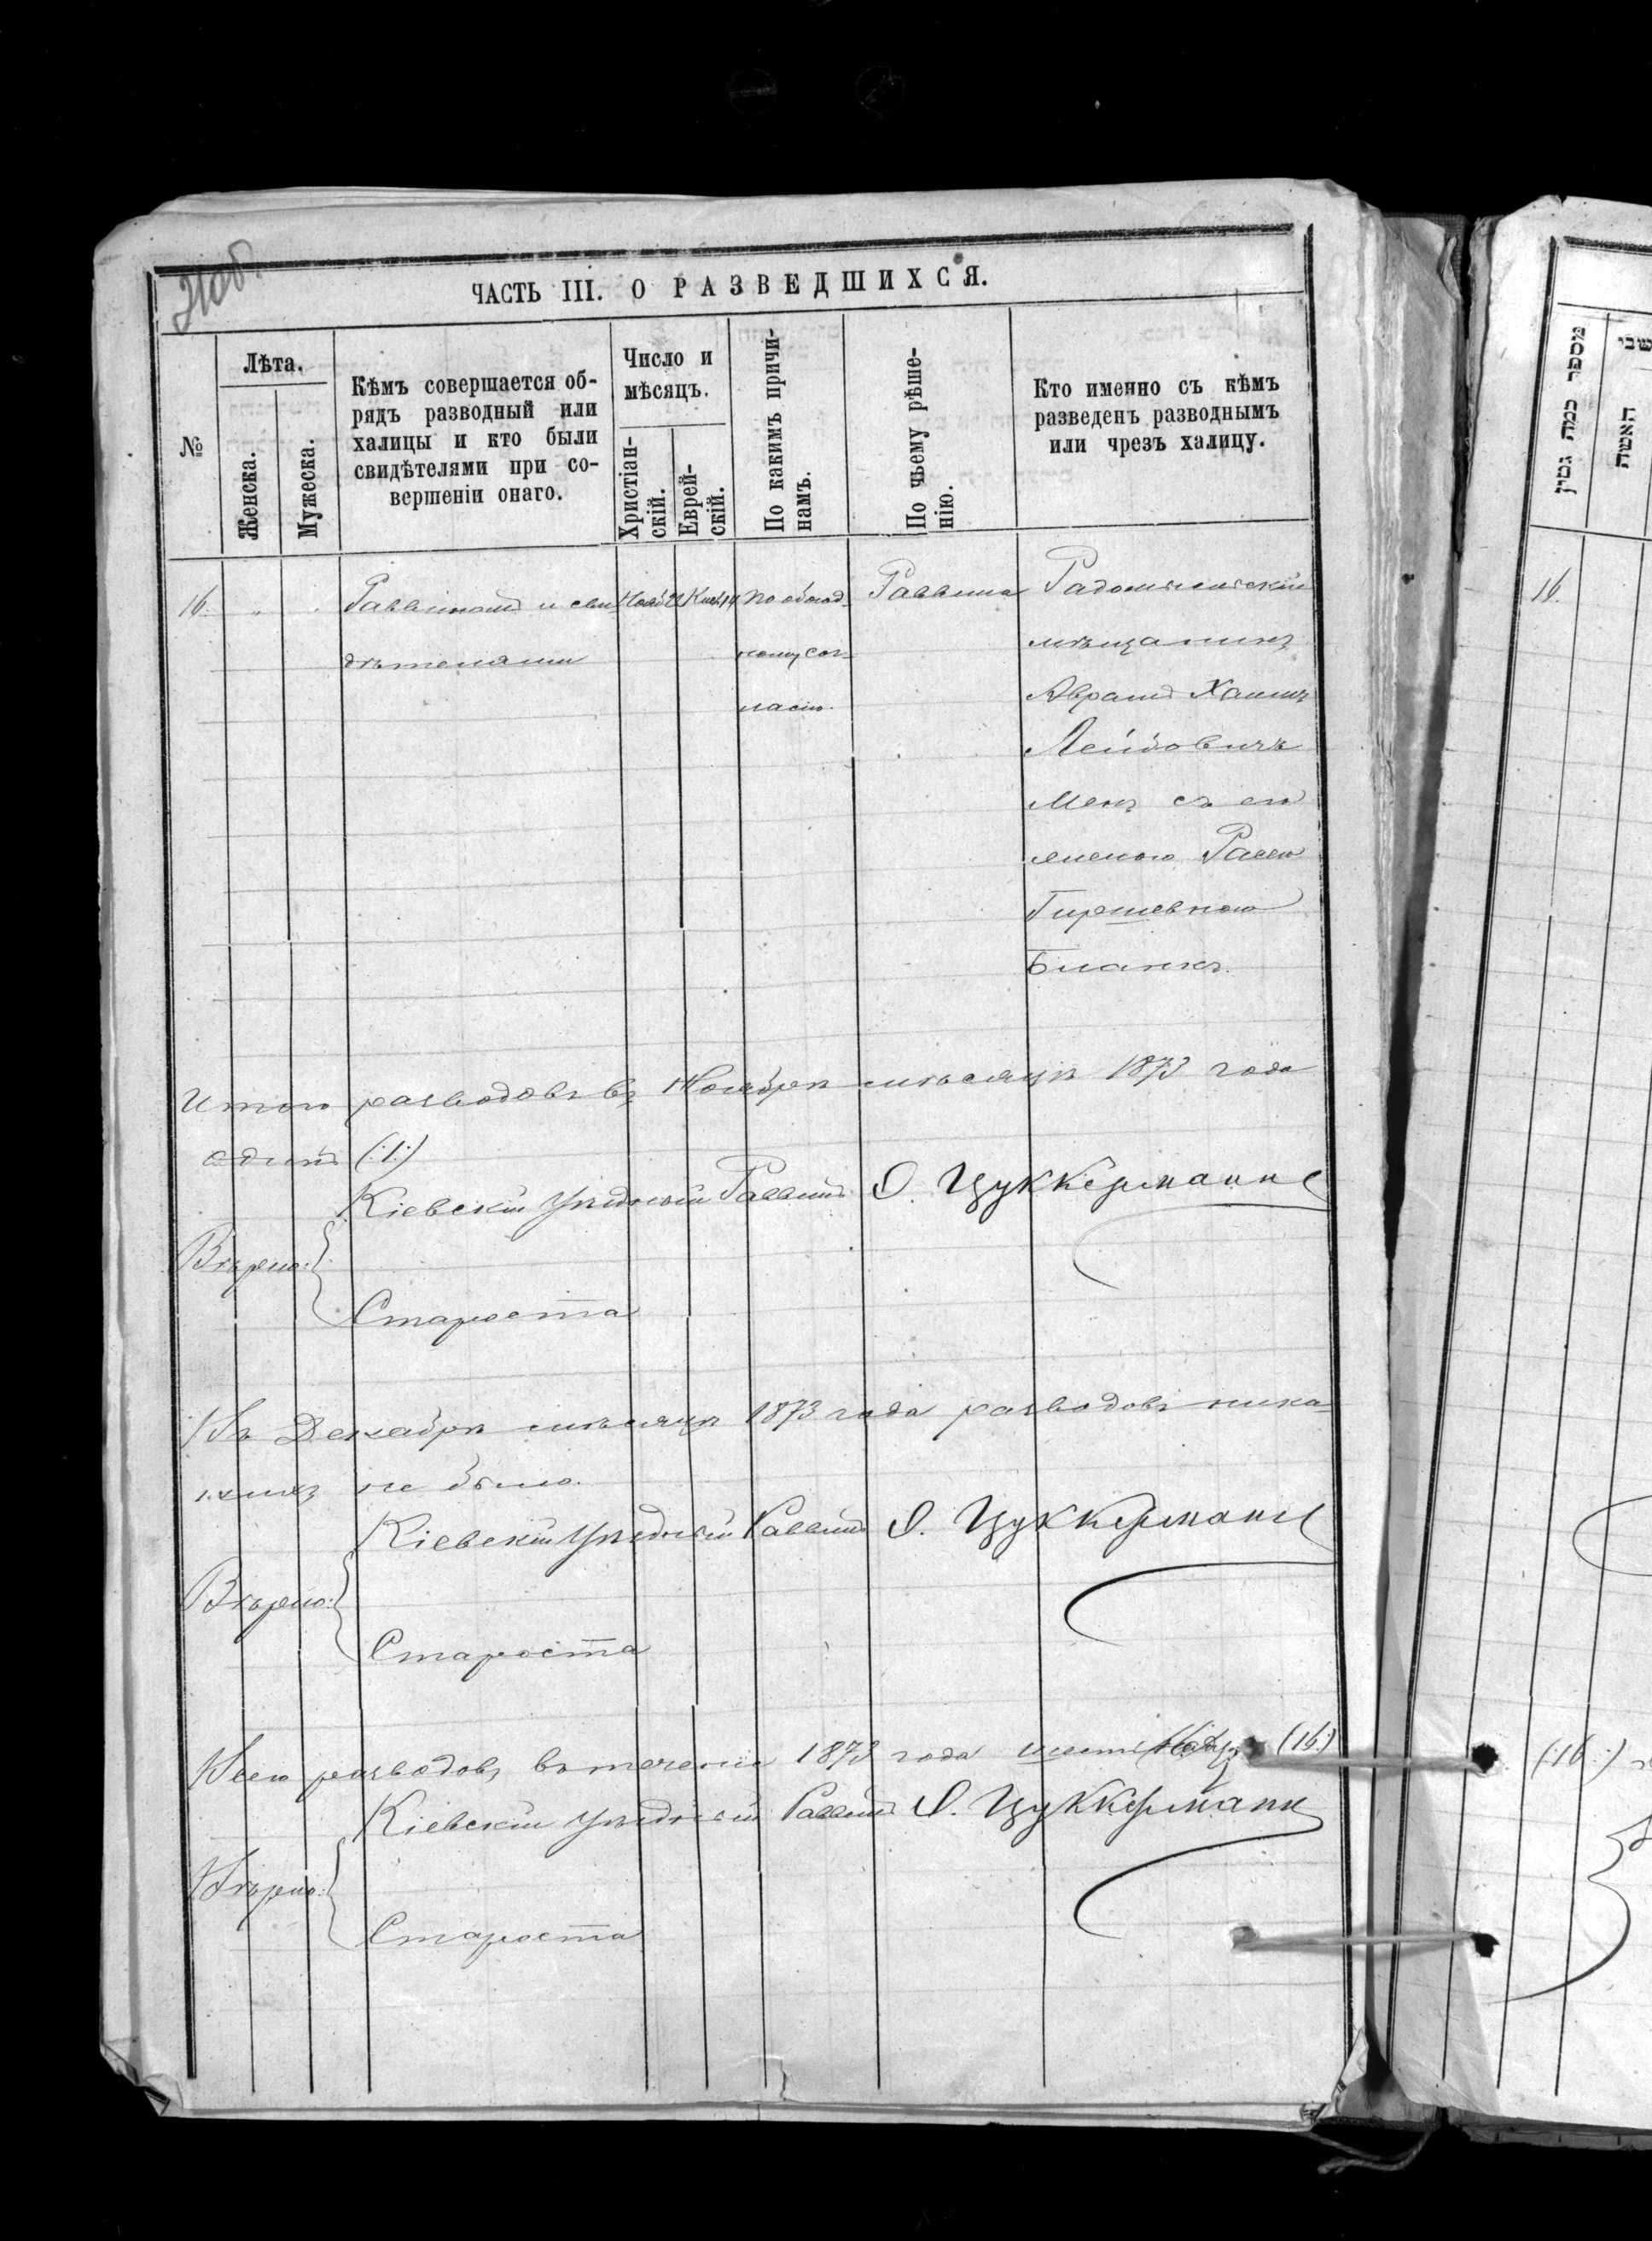 ЧАСТЬ III. О РАЗВЕДШИХСЯ.
№
Лѣта.
Женска.
Мужеска.
Кѣмъ совершается об-
рядъ разводный или
халицы и кто были
свидѣтелями при со-
вершеніи онаго.
Число и
мѣсяцъ.
Христіан-
скій.
Еврей-
скій.
По какимъ причи-
намъ.
По чьему рѣше-
нію.
Кто именно съ кѣмъ
разведенъ разводнымъ
или чрезъ халицу.
16. " " Раввиномъ и сви-
дѣтелями
По обоюд-
ному сог-
ласію.
Раввина
Радомысльскій
мѣщанинъ
Аврамъ Хаимъ
Лейбовичъ
Менъ съ его
женою Расею
Гиршевною
Бланкъ.
Итого разводовъ въ Ноябрѣ мѣсяцѣ 1873 года
одинъ (:1:)
Кіевскій Уѣздный Раввинъ О. Цуккерманъ
Вѣрно:
Староста
Въ Декабрѣ мѣсяцѣ 1873 года разводовъ ника-
кихъ не было.
Кіевскій Уѣздный Раввинъ О. Цуккерманъ
Вѣрно:
Староста
Всего разводовъ въ теченіи 1873 года (16:)
Кіевскій Уѣздный Раввинъ О. Цуккерманъ
Вѣрно:
Староста
מספר כמה גטין
האשה
16.
(:16:)